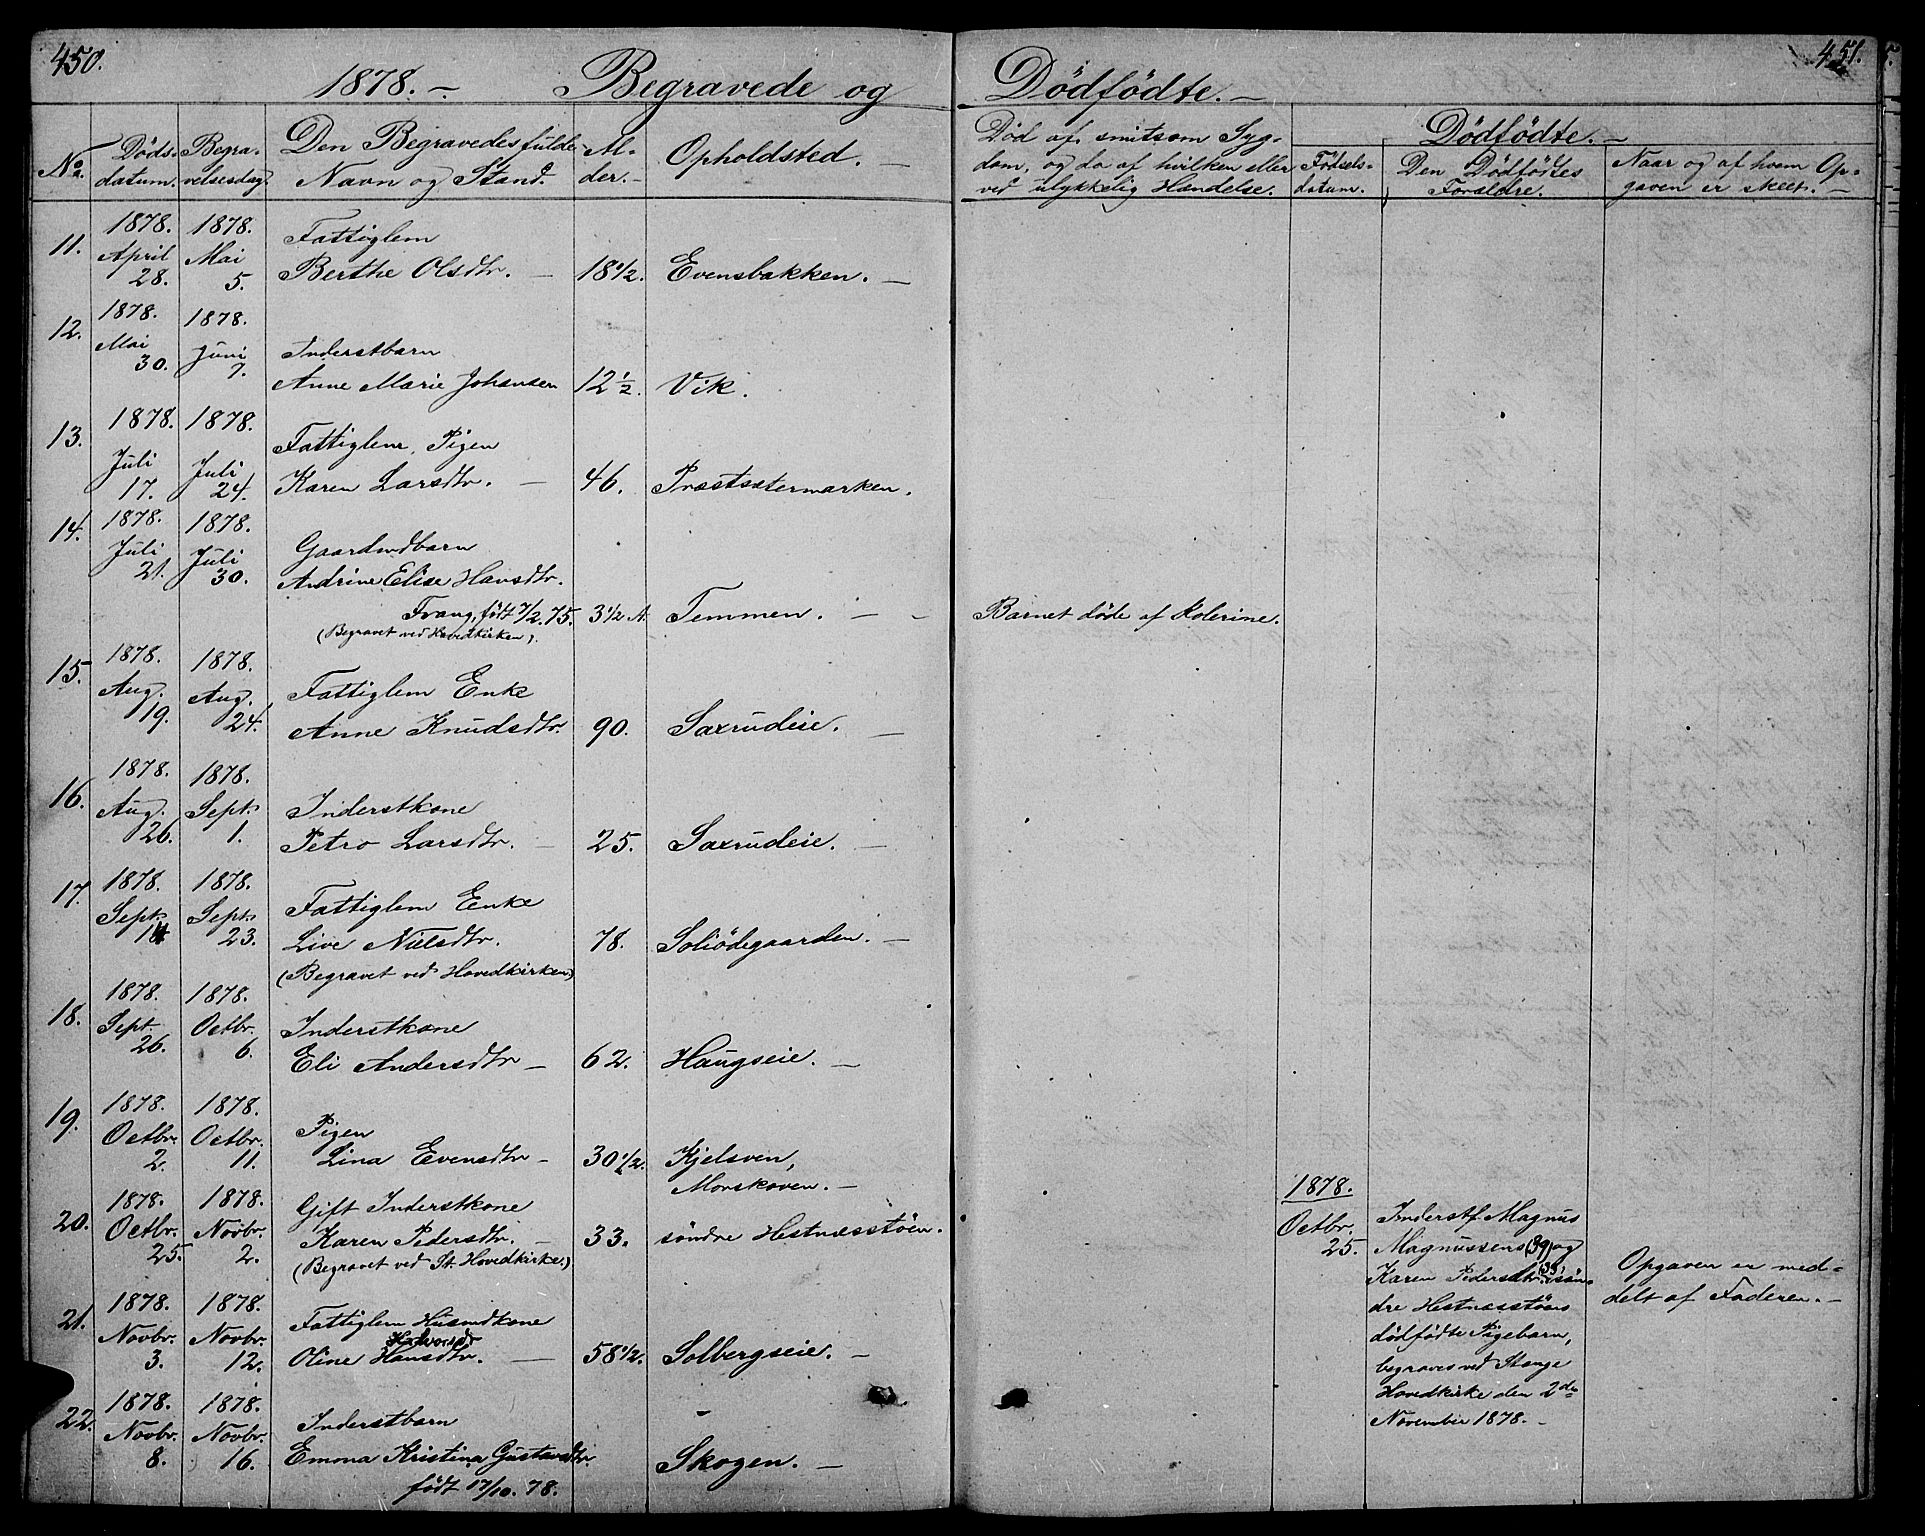 450.
1878. – Begravede og
No. Døds-datum. Begra-velsesdag. Den Begravedes fulde Navn og Stand. Al-der. – Opholdsted. –
11. 1878. April 28. 1878. Mai 5. Fattiglem
Berthe Olsdtr. – 18 1/2. Evensbakken. –
12. 1878. Mai 30. 1878. Juni 7. Inderstbarn
Anne Marie Johansen 12 1/2. Vik.
13. 1878. Juli 17. 1878. Juli 24. Fattiglem, Pigen
Karen Larsdtr. – 46. Præstsætermarken.
14. 1878. Juli 21. 1878. Juli 30. Gaardmdbarn
Andrine Elise Hansdtr.
Frang, født 7/2.75. 3 1/2 A. Temmen. –
(Begravet ved Hovedkirken).
15. 1878. Aug. 19. 1878. Aug. 24. Fattiglem Enke
Anne Knudsdtr. 90. Saxrudeie. –
16. 1878. Aug. 26. 1878. Sept. 1. Inderstkone
Petro Larsdtr. – 25. Saxrudeie. –
17. 1878. Sept. 1878. Sept. 23. Fattiglem Enke
Live Nilsdtr. 78. Soliødegaarden. –
(Begravet ved Hovedkirken)
18. 1878. Sept. 26. 1878. Octbr. 6. Inderstkone
Eli Andersdtr – 62. Haugseie. –
19. 1878. Octbr. 2. 1878. Octbr. 11. Pigen
Lina Evensdtr – 30 1/2. Kjelsven,
Morskoven. –
20. 1878. Octbr. 25. 1878. Novbr. 2. Gift Inderstkone
Karen Pedersdtr. – 33. søndre Hestnæsstøen.
(Begravet ved St. Hovedkirke.)
21. 1878. Novbr. 3. 1878. Novbr. 12. Fattiglem Husmdkone
Halvorsdr
Oline Hansdtr. – 58 1/2. Solbergseie. –
22. 1878. Novbr. 8. 1878. Novbr. 16. Inderstbarn
Emma Kristina Gustavsdtr.
født 17/10. 78. Skogen. –
451.
Dødfødte. –
Død af smitsom Syg-
dom, og da af hvilken eller
ved ulykkelig Hændelse.
Dødfødte. –
Fødsels-
datum.
Den Dødfødtes
Forældre.
Naar og af hvem Op-
gaven er skeet. –
Barnet døde af Kolerine.
1878.
Octbr.
25.
Inderstf Magnus
Magnussens (39) og
Karen Pedersdtr. (33) i søn-
dre Hestnæsstøens
dødfødte Pigebarn,
begraves ved Stange
Hovedkirke den 2den
November 1878. –
Opgaven er med-
delt af Faderen. –